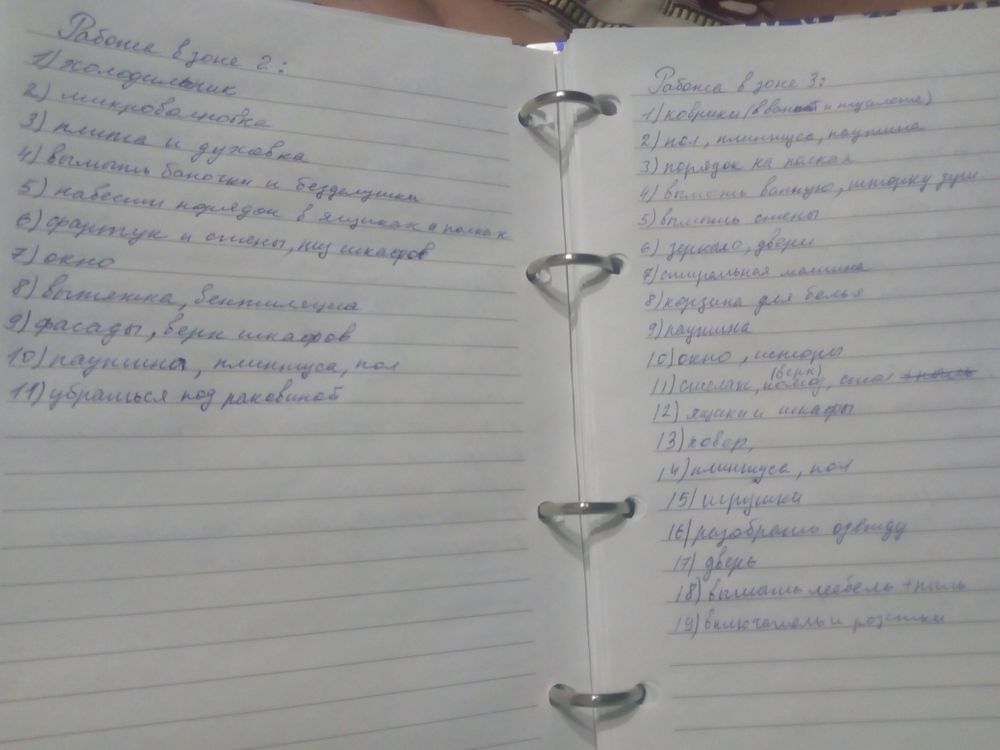 Работа в зоне 2:
1) холодильник
2) микроволновка
3) плита и духовка
4) вымыть баночки и безделушки
5) навести порядок в ящиках и полках
6) фартук и стены, низ шкафов
7) окно
8) вытяжка, вентиляция
9) фасады, верх шкафов
10) паутина, плинтуса, пол
11) убраться под раковиной
Работа в зоне 3:
1) коврики (в ванной и туалете)
2) пол, плинтуса, паутина
3) порядок на полках
4) вымыть ванную, шторку, душ
5) вымыть стены
6) зеркало, двери
7) стиральная машина
8) корзина для белья
9) паутина
10) окно, шторы
(верх)
11) стелаж, комод, стол
12) ящики и шкафы
13) ковер,
14) плинтуса, пол
15) игрушки
16) разобрать одежду
17) дверь
18) вымыть мебель + пыль
19) включатель и розетки